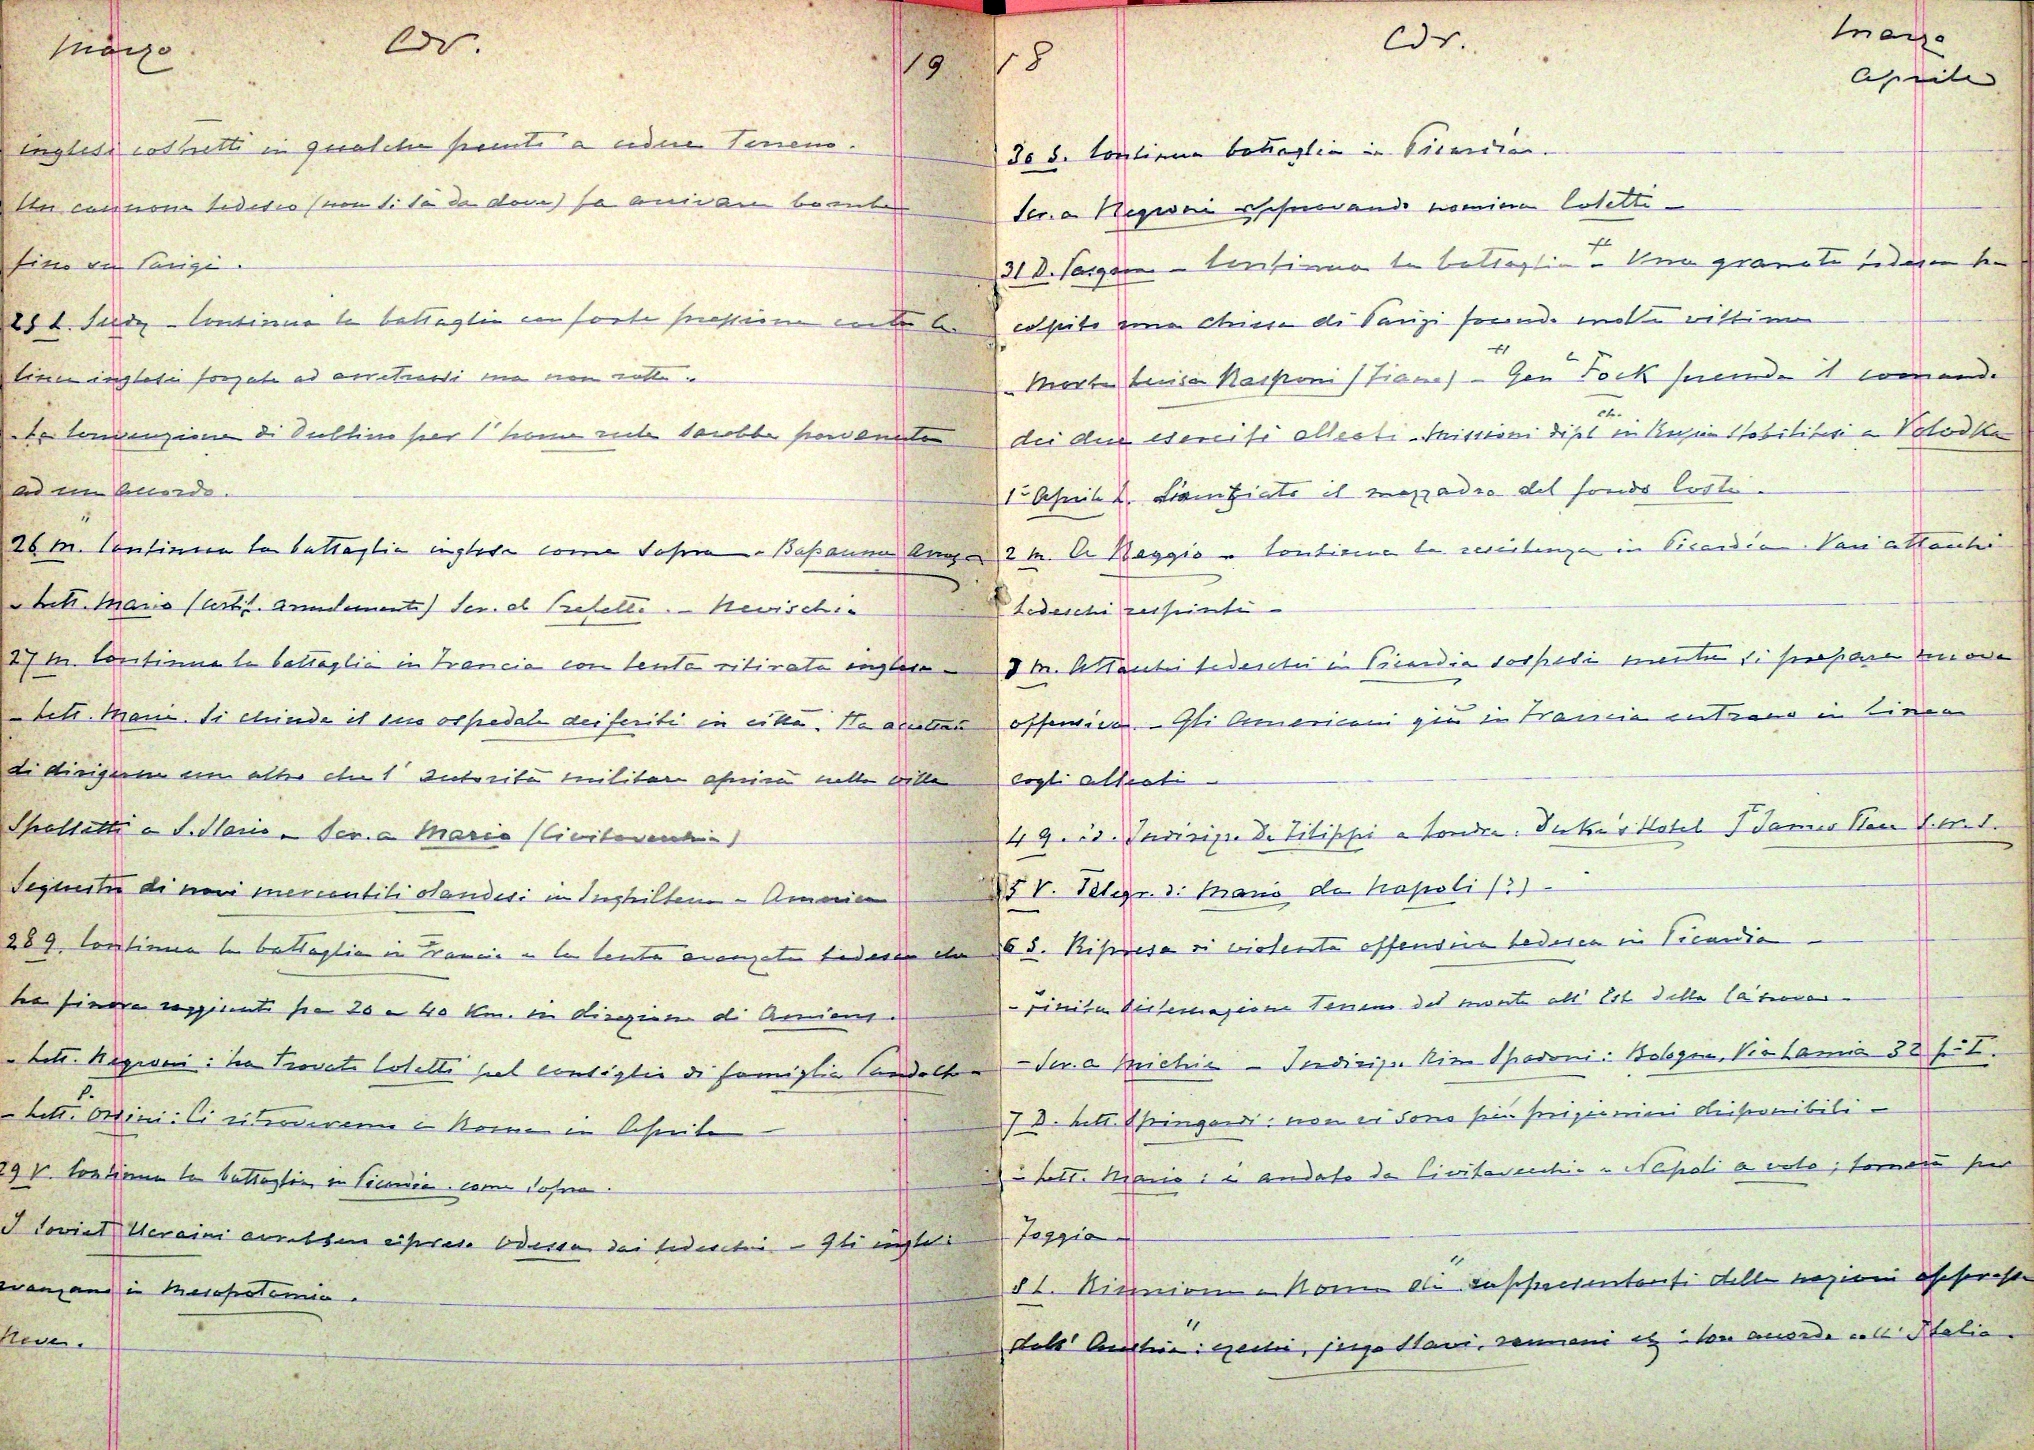 Marzo Cdr. 19
inglesi costretti in qualche punto a cedere terreno.
Un cannone tedesco (non si sà da dove) fa arrivare bombe
fino su Parigi.
25 L. - Continua la battaglia con forte pressione contro la
linea inglese forzata ad arretrarsi ma non rotta.
- La Convenzione di Dublino per l'home rule sarebbe pervenuta
ad un accordo.
26 M. Continua la battaglia inglese come sopra - Bapaume
- Lett. Mario (certif. arruolamento) Scr. al Prefetto. - Nevischio
27 M. Continua la battaglia in Francia con lenta ritirata inglese -
- Lett. Mario. Si chiude il suo ospedale dei feriti in città. Ha accettato
di dirigerne un altro che l'autorità militare aprirà nella villa
Spalletti a S. Ilario - Scr. a Mario (Civitavecchia)
Sequestro di navi mercantili olandesi in Inghilterra - America
28 G. Continua la battaglia in Francia e la lenta avanzata tedesca che
ha finora raggiunto fra 20 a 40 Km. in direzione di Amiens.
- Lett. Negroni: ha trovato Coletti pel consiglio di famiglia
- Lett. P. Orsini: Ci ritroveremo a Roma in Aprile -
29 V. Continua la battaglia in Picardia come sopra.
I Soviet Ucraini avrebbero ripreso Odessa dai tedeschi - Gli inglesi
avanzano in Mesopotamia.
Neve.
18 Cdr. Marzo
Aprile
30 S. Continua battaglia in Picardia.
Scr. a Negroni approvando nomina Coletti -
31 D. Pasqua - Continua la battaglia - Una granata tedesca ha
colpito una chiesa di Parigi facendo molte vittime
- Morta Luisa Rasponi - Gen Fock prende il comando
dei due eserciti alleati - Missioni dipl in Russia stabilitesi a Volodka
1° Aprile L. Licenziato il mezzadro del fondo Costi.
2 M. A Reggio - Continua la resistenza in Picardia. Vari attacchi
tedeschi respinti -
3 M. Attacchi tedeschi in Picardia sospesi mentre si prepara nuova
offensiva - Gli Americani già in Francia entrano in linea
cogli alleati -
4 G. id. Indirizzo De Filippi a Londra: Duke's Hotel St James Place S.W.1.
5 V. Telegr. di Mario da Napoli (?) -
6 S. Ripresa di violenta offensiva tedesca in Picardia -
- Finita sistemazione terreno del monte all'Est della
- Scr. a Michie - Indirizzo Spadoni: Bologna, Via Lamia 32 p° I.
7 D. Lett. Spingardi: non ci sono più prigionieri disponibili -
- Lett. Mario: è andato da Civitavecchia a Napoli a volo; tornerà per
Foggia -
8 L. Riunione a Roma di "rappresentanti delle nazioni oppresse
dall'Austria": czechi, jugo slavi, rumeni: loro accordo coll'Italia.